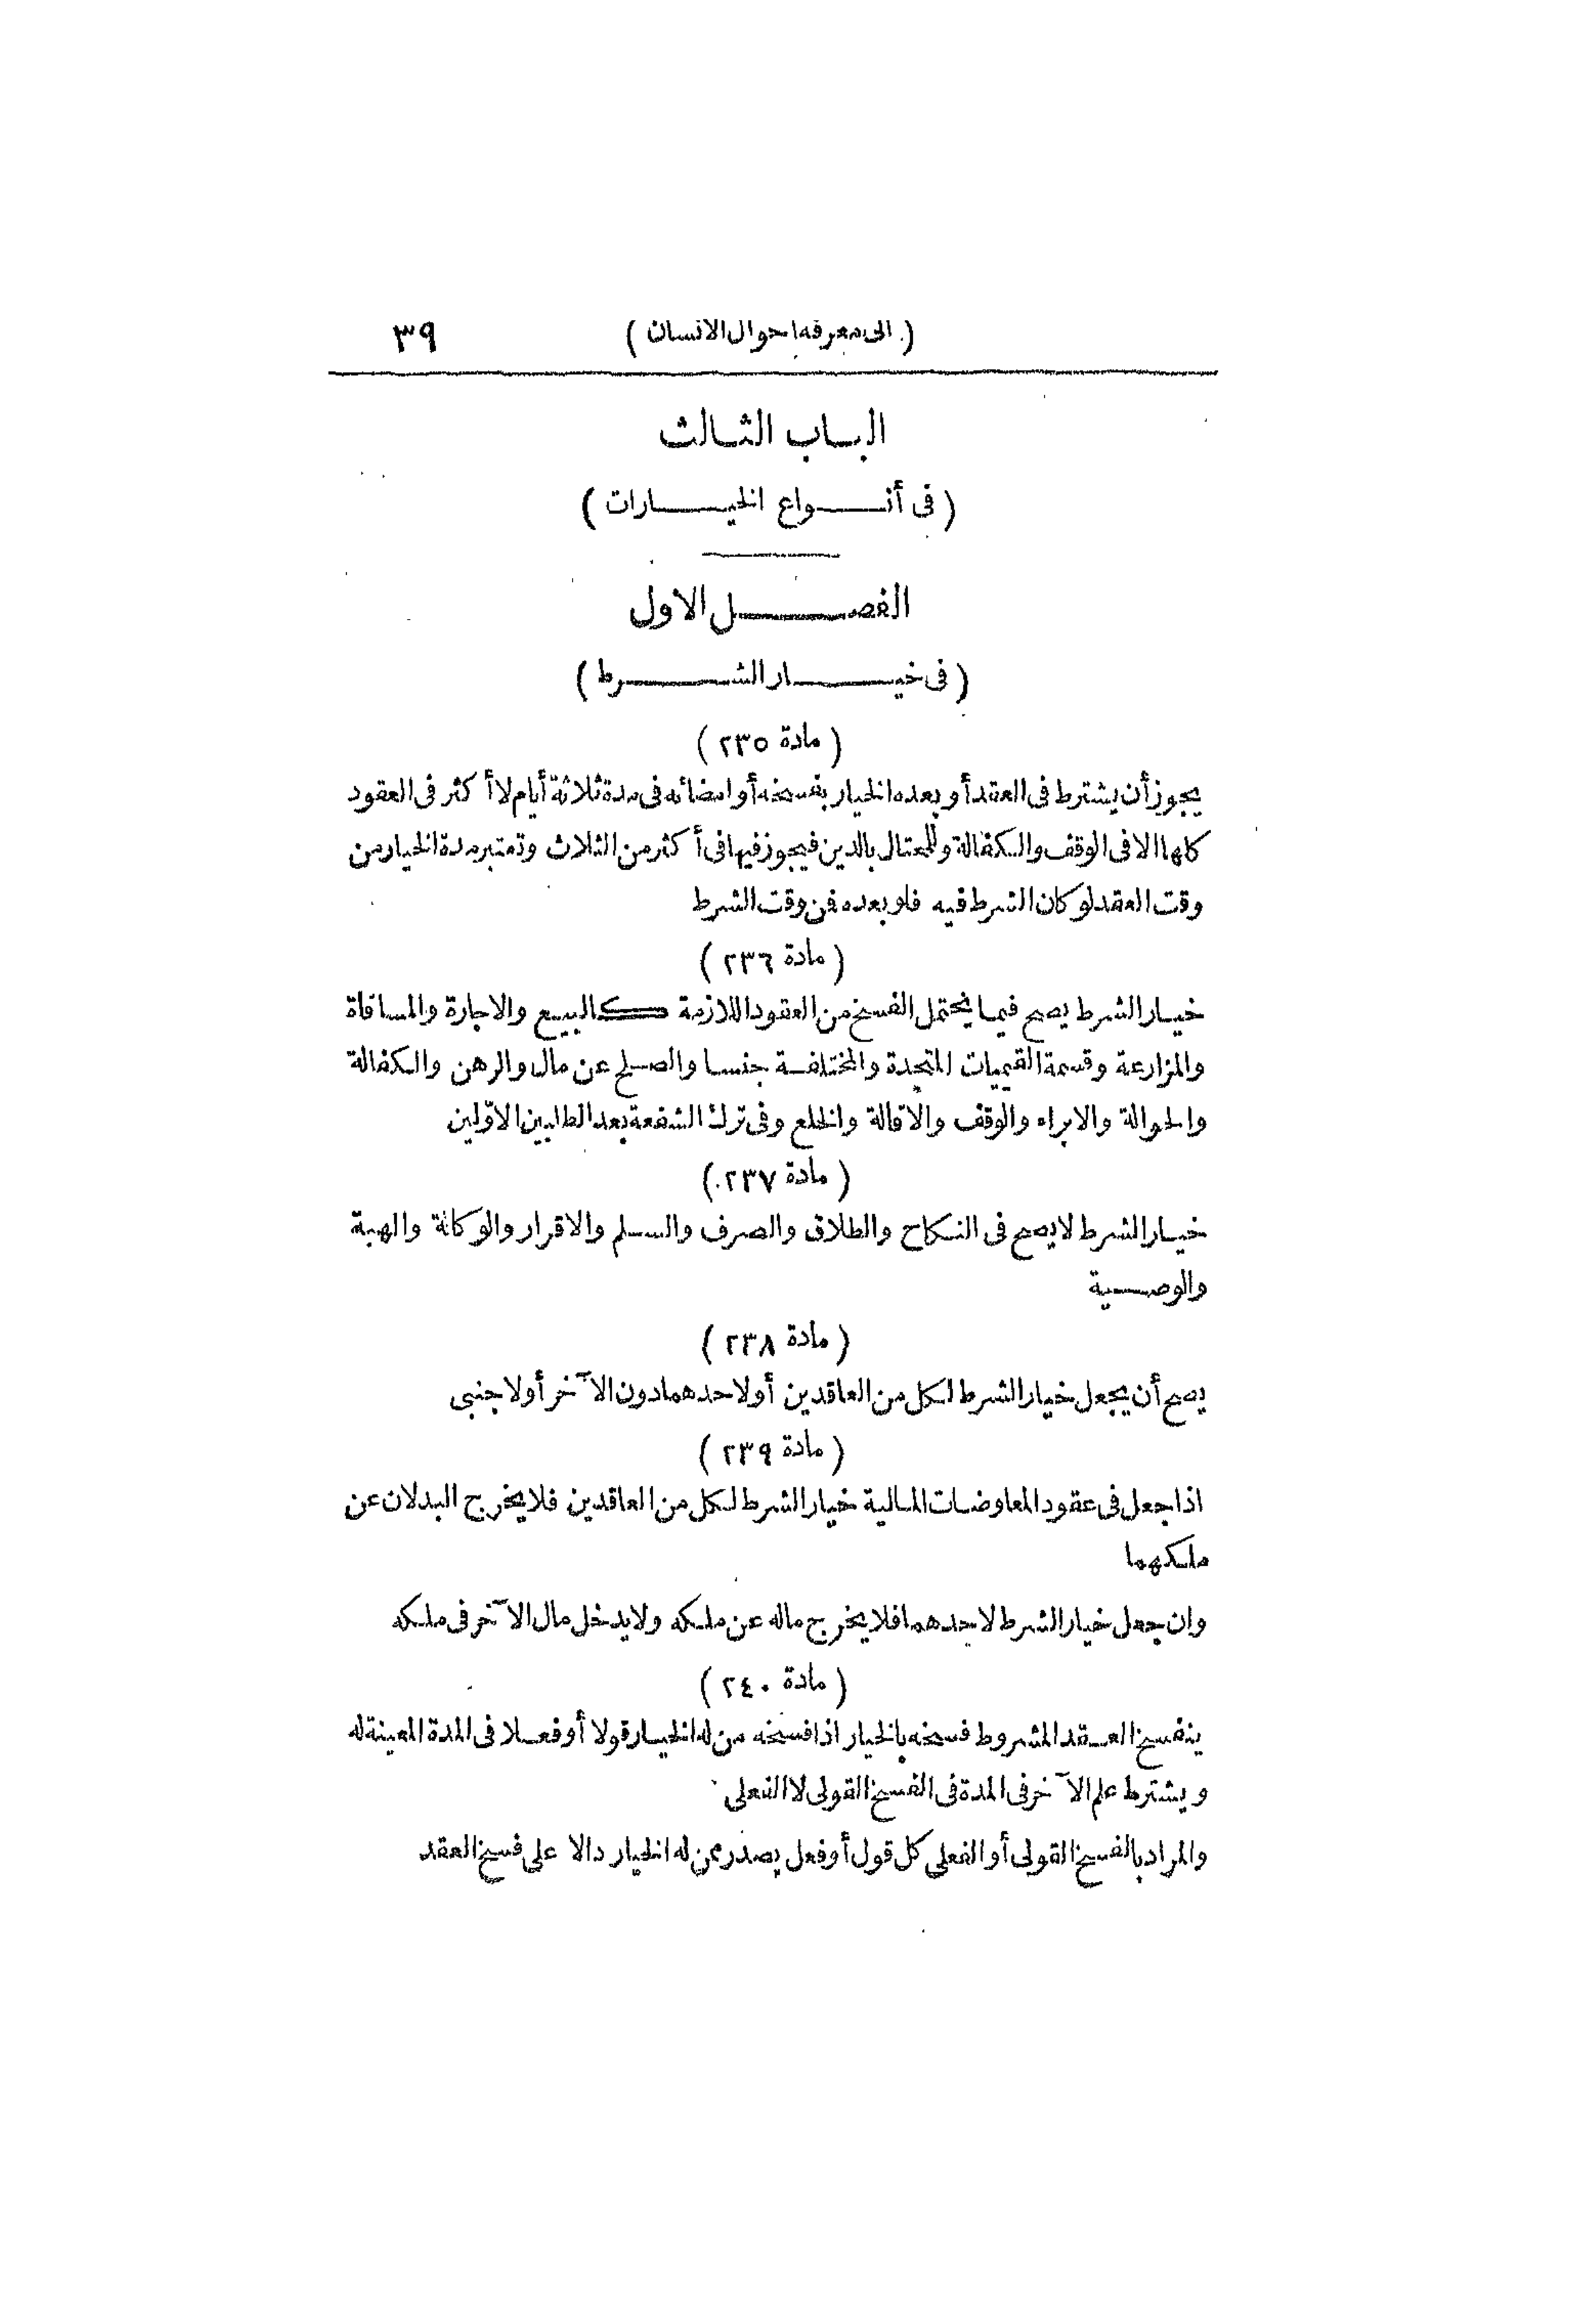 ( الى معرفة احوال الانسان ) ٣٩
الباب الثالث
( فى أنواع الخيارات )
الفصل الاول
( فى خيار الشرط )
( مادة ٢٣٥ )
يجوز أن يشترط فى العقد أو بعده الخيار بفسخه أو امضائه فى مدة ثلاثة أيام لا أكثر فى العقود
كلها الا فى الوقف والكفالة وللمحتال بالدين فيجوز فيها فى أكثر من الثلاث وتعتبر مدة الخيار من
وقت العقد لو كان الشرط فيه فلو بعده فمن وقت الشرط
( مادة ٢٣٦ )
خيار الشرط يصح فيما يحتمل الفسخ من العقود اللازمة كالبيع والاجارة والمساقاة
والمزارعة وقسمة القيميات المتحدة والمختلفة جنسا والصلح عن مال والرهن والكفالة
والحوالة والابراء والوقف والاقالة والخلع وفى ترك الشفعة بعد الطلبين الاوّلين
( مادة ٢٣٧ )
خيار الشرط لا يصح فى النكاح والطلاق والصرف والسلم والاقرار والوكالة والهبة
والوصية
( مادة ٢٣٨ )
يصح أن يجعل خيار الشرط لكل من العاقدين أو لاحدهما دون الآخر أو لاجنبى
( مادة ٢٣٩ )
اذا جعل فى عقود المعاوضات المالية خيار الشرط لكل من العاقدين فلا يخرج البدلان عن
ملكهما
وان جعل خيار الشرط لاحدهما فلا يخرج ماله عن ملكه ولا يدخل مال الآخر فى ملكه
( مادة ٢٤٠ )
ينفسخ العقد المشروط فسخه بالخيار اذا فسخه من له الخيار قولا أو فعلا فى المدة المعينة له
ويشترط علم الآخر فى المدة فى الفسخ القولى لا الفعلى
والمراد بالفسخ القولى أو الفعلى كل قول أو فعل يصدر ممن له الخيار دالا على فسخ العقد